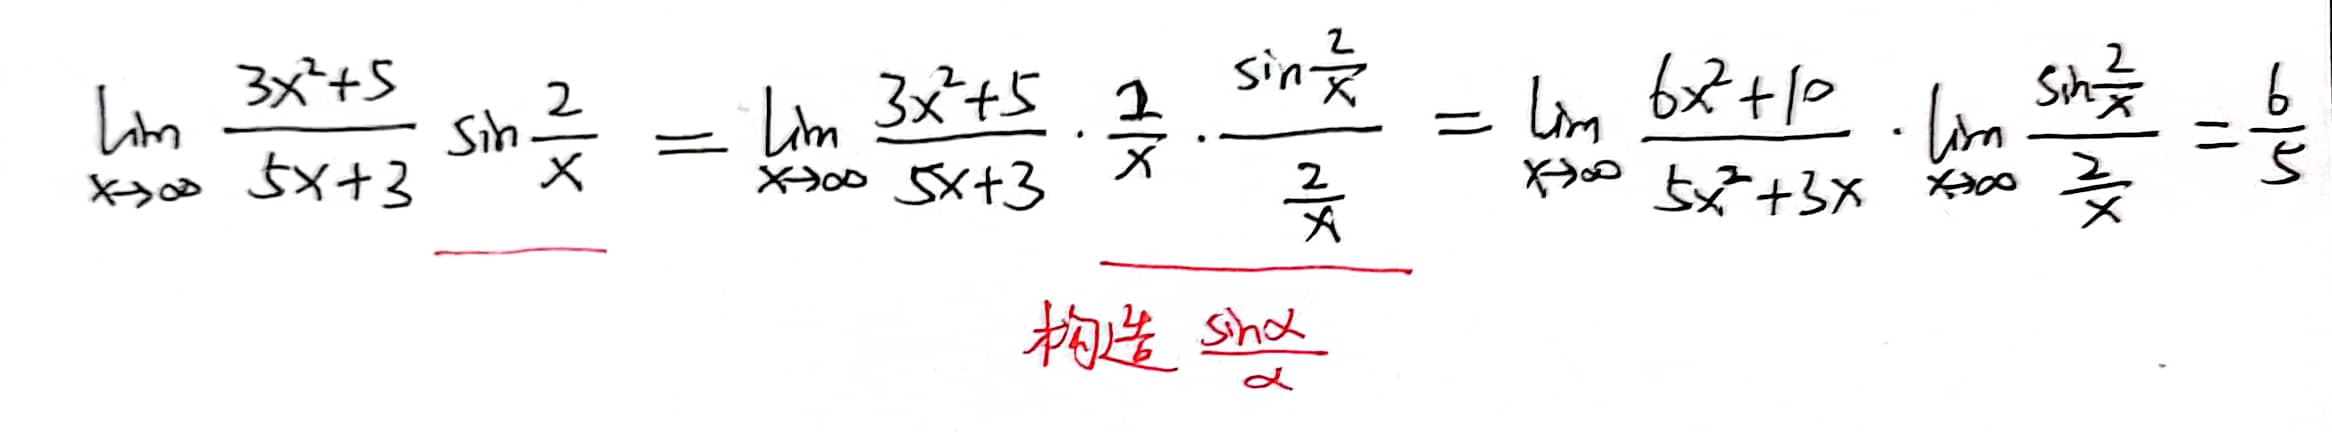 lim x→∞ (3x²+5)/(5x+3) sin 2/x = lim x→∞ (3x²+5)/(5x+3) · 2/x · (sin 2/x)/(2/x) = lim x→∞ (6x²+10)/(5x²+3x) · lim x→∞ (sin 2/x)/(2/x) = 6/5
构造 sinα/α